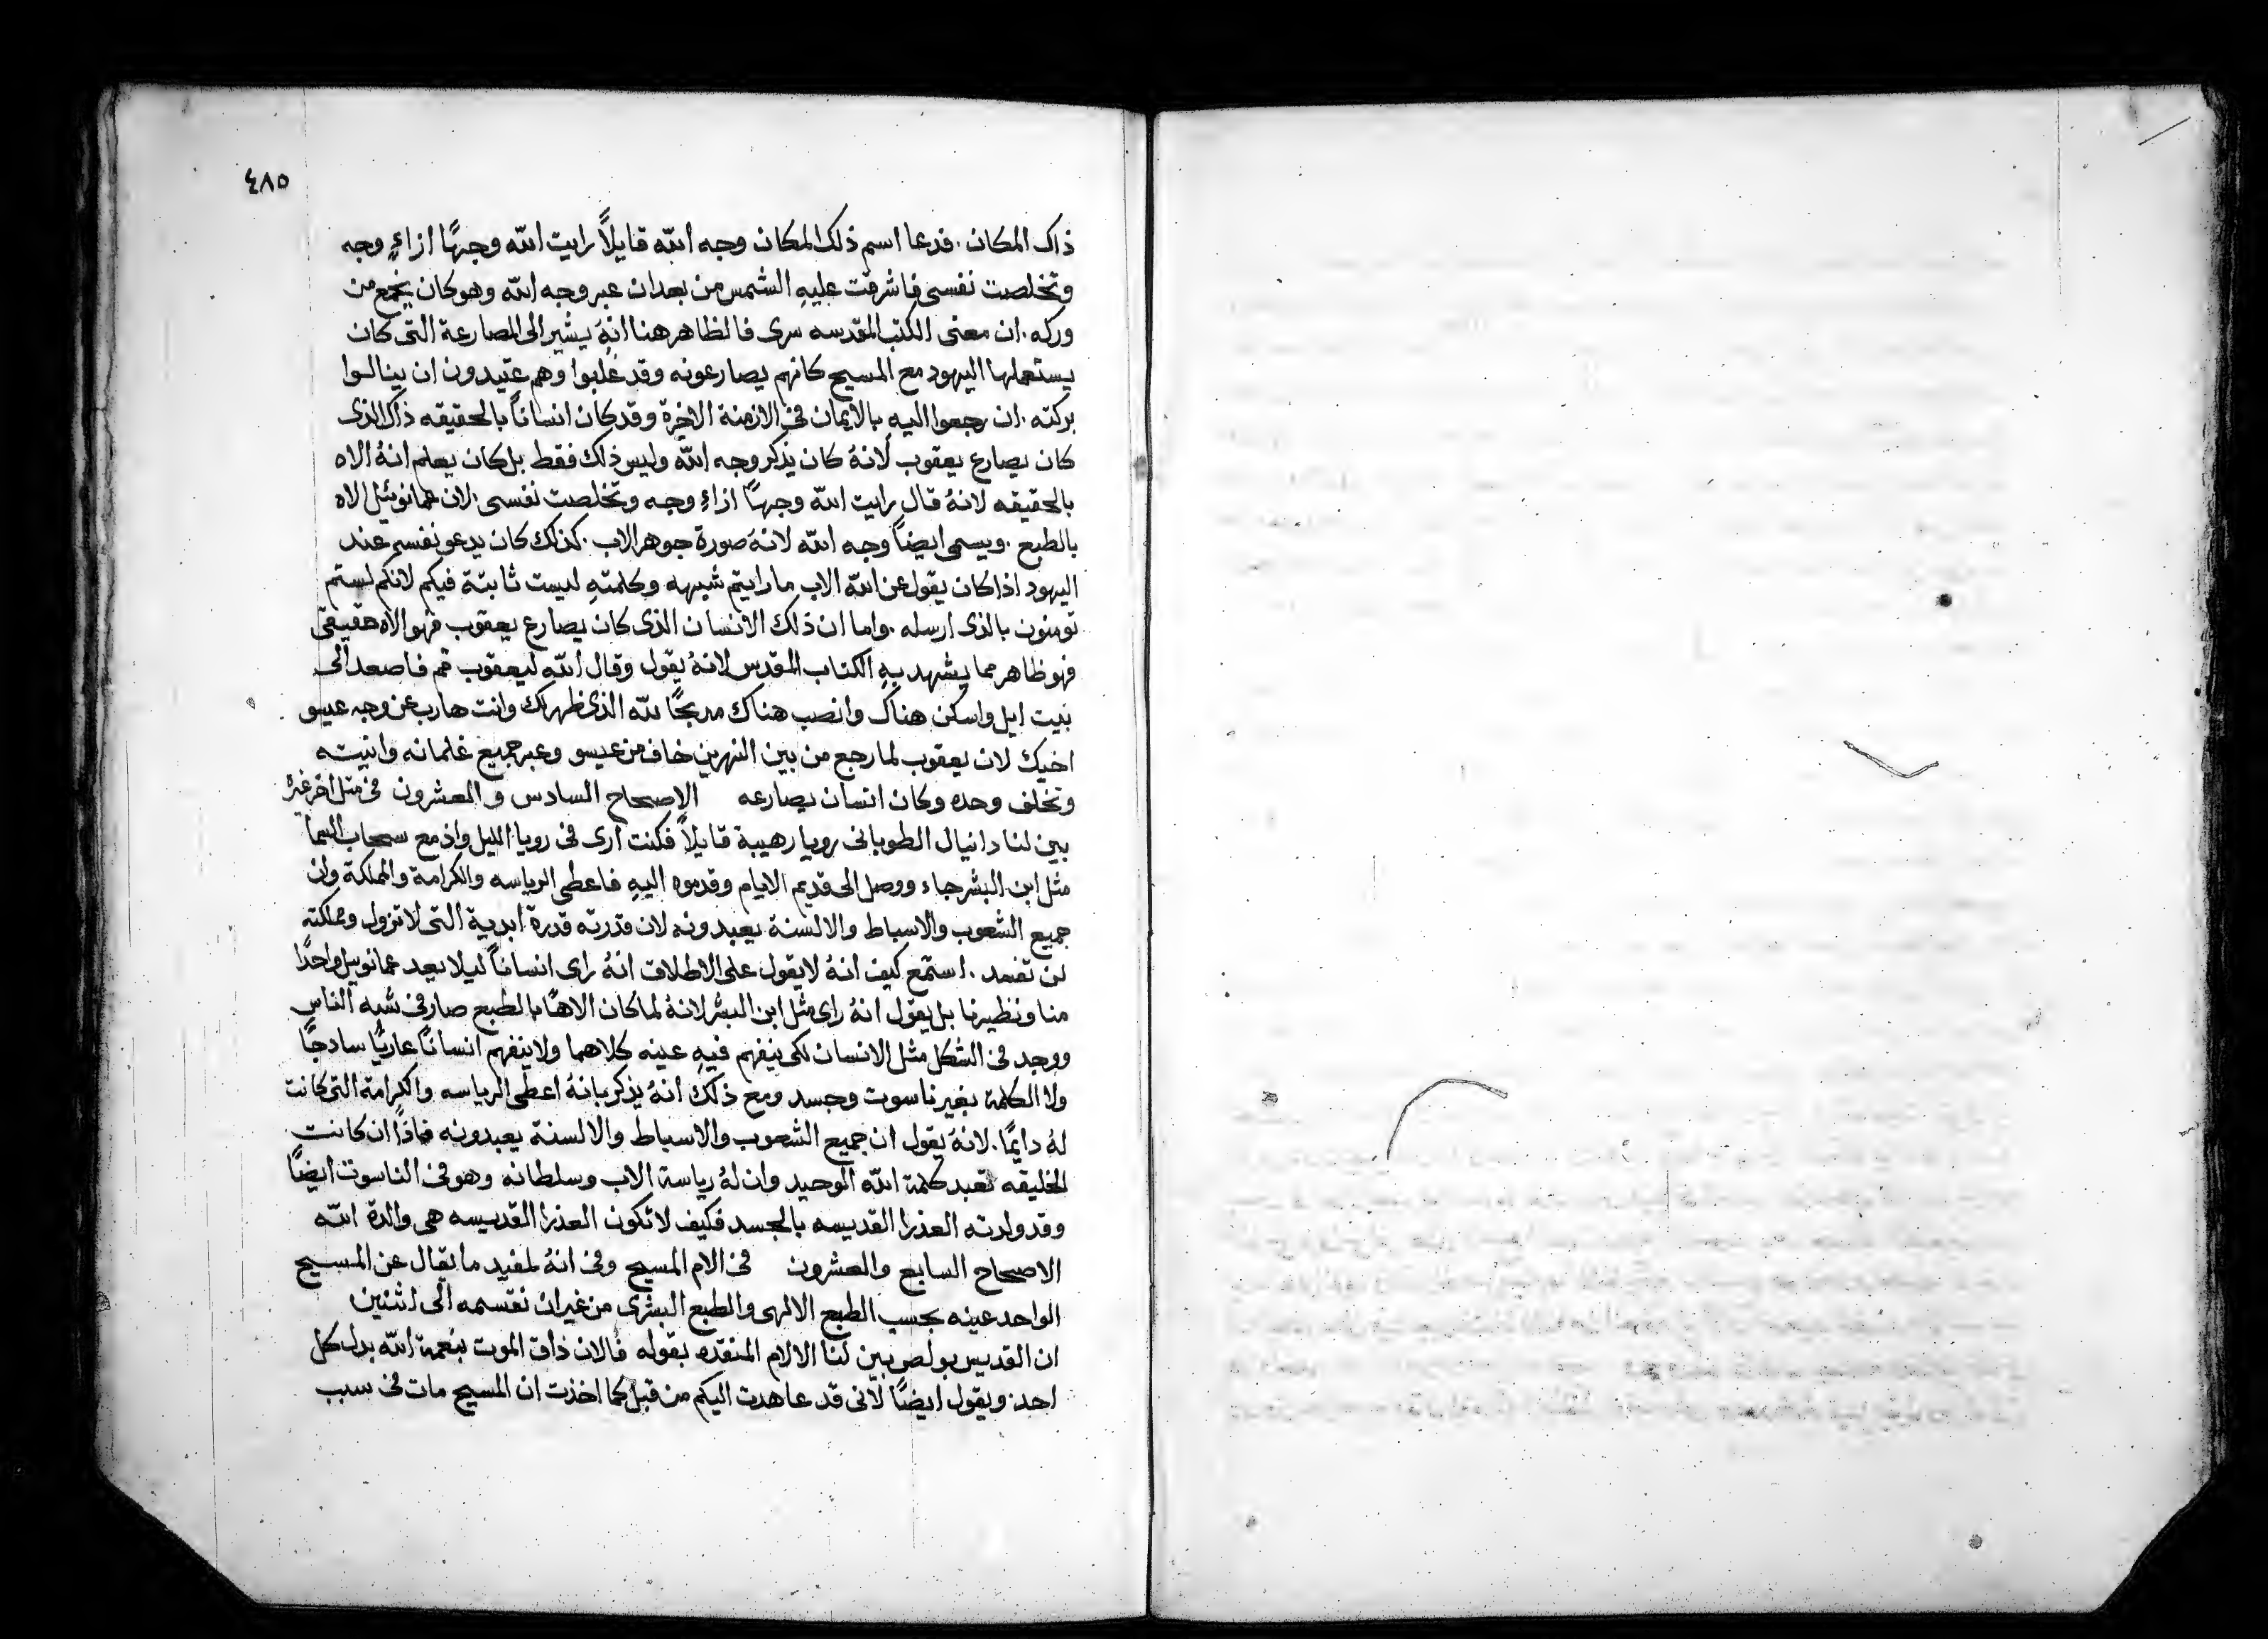 ٤٨٥
ذاك المكان . فدعا اسم ذلك المكان وجه الله قايلاً رايت الله وجهًا ازاءِ وجه
وتخلصت نفسي فاشرقت عليهِ الشمس من بعد ان عبر وجه الله وهو كان يخمع من
وركه . ان معنى الكتب المقدسه سرى فالظاهر هنا انهُ يشير الى المصارعة التى كان
يستعملها اليهود مع المسيح كانهم يصارعونه وقد غُلبوا وهم عتيدون ان ينالوا
بركته . ان رجعوا اليهِ بالايمان فى الازمنة الاخرة وقد كان انساناً بالحقيقه ذاك الذى
كان يصارع يعقوب لانهُ كان يذكر وجه الله وليس ذلك فقط بل كان يعلم انهُ الاه
بالحقيقه لانهُ قال رايت الله وجهاً ازاءِ وجه وتخلصت نفسى . لان عمانوئيل الاه
بالطبع . ويسمى ايضاً وجه الله لانهُ صورة جوهر الاب . كذلك كان يدعو نفسه عند
اليهود اذا كان يقول عن الله الاب ما رايتم شبهه وكلمتهِ ليست ثابتة فيكم لانكم لستم
تومنون بالذى ارسله . واما ان ذلك الانسان الذى كان يصارع يعقوب فهو الاه حقيقى
فهو ظاهر مما يشهد بهِ الكتاب المقدس لانهُ يقول وقال الله ليعقوب قم فاصعد الى
بيت ايل واسكن هناك وانصب هناك مدبحًا لله الذى ظهر لك وانت هارب عن وجه عيسو
اخيك لان يعقوب لما رجع من بين النهرين خاف من عيسو وعبر جميع غلمانه وانيته
وتخلف وحده وكان انسان يصارعه الاصحاح السادس والعشرون فى مثل اخر غيره
بين لنا دانيال الطوبانى رويا رهيبة قايلاً فكنت ارى فى رويا الليل واذ مع سحاب السما
مثل ابن البشر جاء ووصل الى قديم الايام وقدموه اليهِ فاعطى الرياسه والكرامة والمملكة وان
جميع الشعوب والاسباط والالسنة يعبدونه لان قدرته قدرة ابدية التى لا تزول ومملكته
لن تفسد . استمع كيف انهُ لا يقول على الاطلاق انهُ راى انساناً ليلا يعد عمانوييل واحدًا
منا ونظيرنا بل يقول انهُ راى مثل ابن البشر لانهُ لما كان الاهًا بالطبع صار فى شبه الناس
ووجد فى الشكل مثل الانسان لكى ينفهم فيهِ عينه كلاهما ولا ينفهم انساناً عاريًا سادجًا
ولا الكلمة بغير ناسوت وجسد ومع ذلك انهُ يذكر بانهُ اعطى الرياسه والكرامة التى كانت
لهُ دايمًا . لانهُ يقول ان جميع الشعوب والاسباط والالسنة يعبدونه فاذًا ان كانت
الخليقه تعبد كلمة الله الوحيد وان لهُ رياسة الاب وسلطانه وهو فى الناسوت ايضًا
وقد ولدته العذرا القديسه بالجسد فكيف لا تكون العذرا القديسه هى والدة الله
الاصحاح السابع والعشرون فى الام المسيح وفى انهُ لمفيد ما يقال عن المسيح
الواحد عينه بحسب الطبع الالهى والطبع البشرى من غير ان نقسمه الى اثنين
ان القديس بولص يبين لنا الالام المنقذه بقوله فالان ذاق الموت بنعمة الله بدل كل
احد . ويقول ايضًا لانى قد عاهدت اليكم من قبل كما اخذت ان المسيح مات فى سبب